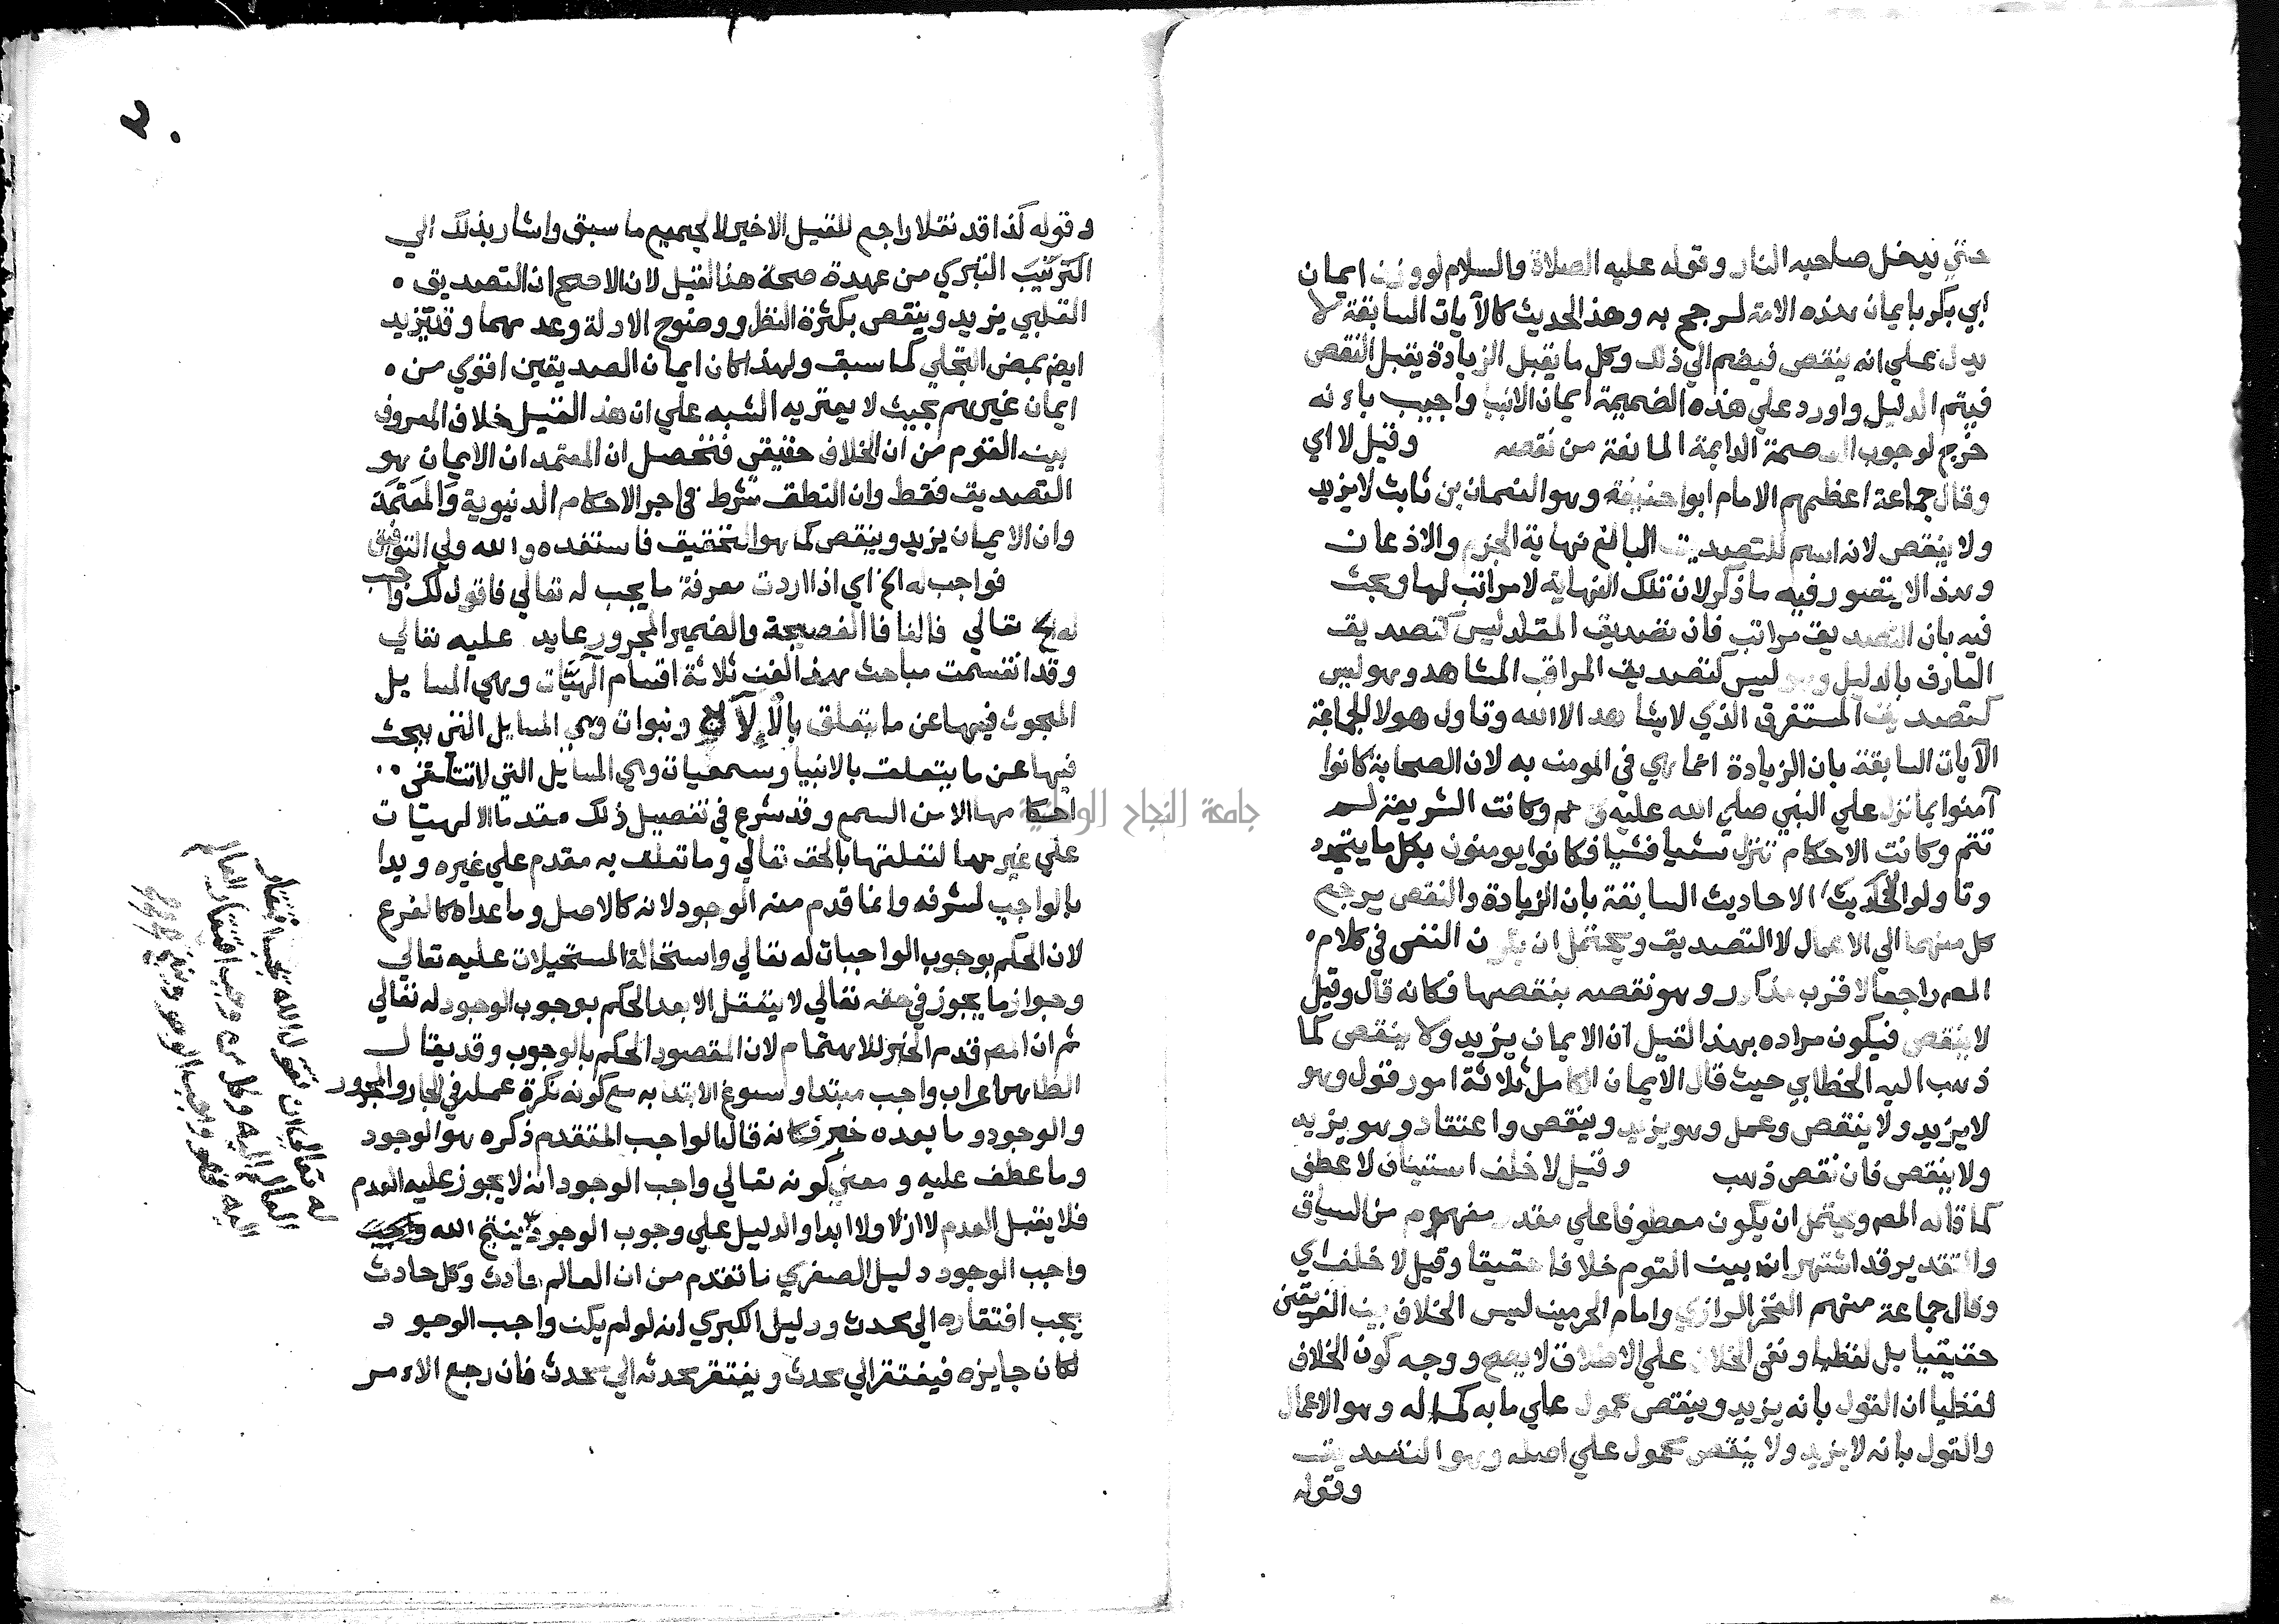 حتي يدخل صاحبه النار وقوله عليه الصلاة والسلام لو وزن ايمان
ابي بكر بايمان هذه الامة لرجح به وهذ الحديث كالآيات السابقة لا
يدل علي انه ينقص فيضم الي ذلك وكل ما يقبل الزيادة يقبل النقص
فيتم الدليل واورد علي هذه الضميمة ايمان الانبيا واجيب باءنه
خرج لوجوب العصمة الدايمة المانعة من نقصه وقيل لا اي
وقال جماعة اعظمهم الامام ابوا حنيفة وهو النعمان بن ثابت لا يزيد
ولا ينقص لانه اسم للتصديق البالغ نهاية الجزم والاذعان
وهذ الا يتصور فيه ما ذكر لان تلك النهاية لا مراتب لها وبحث
فيه بان التصديق مراتب فان تصديق المقلد ليس كتصديق
العارف بالدليل وهو ليس كتصديق المراقب المشاهد وهو ليس
كتصديق المستغرق الذي لا يشاهد الا الله وتاول هولا الجماعة
الآيات السابقة بان الزيادة انما هي في المومن به لان الصحابة كانوا
آمنوا بما نزل علي النبي صلي الله عليه وكانت الشريعة لم
تتم وكانت الاحكام تنزل شيا فشيا فكانوا يومنون بكل ما يتجدد
وتاولوا الاحاديث السابقة بان الزيادة والنقص يرجع
كل منهما الي الاعمال لا التصديق ويحتمل ان يكون النفي في كلام
المص راجعا لاقرب مذكور وهو نقصه بنقصها فكانه قال وقيل
لا ينقص فيكون مراده بهذ القيل ان الايمان يزيد ولا ينقص كما
ذهب اليه الخطابي حيث قال الايمان الكامل ثلاثة امور قول وهو
لا يزيد ولا ينقص وعمل وهو يزيد وينقص واعتقاد وهو يزيد
ولا ينقص فان نقص ذهب وقيل لا خلف استيناف لا عطف
كما قاله المص ويحتمل ان يكون معطوفا علي مقدر مفهوم من السياق
والتقدير قد اشتهر ان بين القوم خلافا حقيقيا وقيل لا خلف اي
وقال جماعة منهم الفخر الرازي وامام الحرمين ليس الخلاف بين الفريقين
حقيقيا بل لفظيا ونفي الخلاف علي الاطلاق لا يصح ووجه كون الخلاف
لفظيا ان القول بانه يزيد وينقص محمول علي ما به كماله وهو الاعمال
والقول بانه لا يزيد ولا ينقص محمول علي اصله وهو التصديق
وقوله
وقوله كذا قد نقلا راجع للقيل الاخير لا لجميع ما سبق واشار بذلك الي
التبري من عهدة صحة هذ القيل لان الاصح ان التصديق
القلبي يزيد وينقص بكثرة النظر ووضوح الادلة وعدمهما وقد يزيد
ايض بمحض التجلي كما سبق ولهذا كان ايمان الصديقين اقوي من
ايمان غيرهم بحيث لا يعتريه الشبه علي ان هذ القيل خلاف المعروف
بين القوم من ان الخلاف حقيقي فتحصل ان المعتمد ان الايمان هو
التصديق فقط وان النطق شرط في اجر الاحكام الدنيوية والمعتمد
وان الايمان يزيد وينقص كما هو التحقيق فاستفده والله ولي التوفيق
فواجب له الخ اي اذا اردت معرفة ما يجب له تعالي فاقول لك واجب
له تعالي فالفا فا الفصيحة والضمير المجرور عايد عليه تعالي
وقد انقسمت مباحث هذ الفن ثلاثة اقسام الهيات وهي المسايل
المبحوث فيها عن ما يتعلق بالاله ونبوات وهي المسايل التي يبحث
فيها عن ما يتعلق بالانبيا وسمعيات وهي المسايل التي لا تتلقي
احكامها الا من السمع وقد شرع في تفصيل ذلك مقدما الالهيات
علي غيرهما لتعلقها بالحق تعالي وما تعلق به مقدم علي غيره وبدا
بالواجب لشرفه وانما قدم منه الوجود لانه كالاصل وما عداه كالفرع
لان الحكم بوجوب الواجبات له تعالي واستحالة المستحيلات عليه تعالي
وجواز ما يجوز في حقه تعالي لا يتعقل الا بعد الحكم بوجوب الوجود له تعالي
ثم ان المص قدم الخبر للاهتمام لان المقصود الحكم بالوجوب وقد يقال
الظاهر اعراب واجب مبتدا وسوغ الابتدا به مع كونه نكرة عمله في الجار والمجرور
والوجود وما بعده خبر فكانه قال الواجب المتقدم ذكره هو الوجود
وما عطف عليه ومعني كونه تعالي واجب الوجود انه لا يجوز عليه العدم
فلا يقبل العدم لا ازلا ولا ابدا والدليل علي وجوب الوجود ينتج الله
واجب الوجود دليل الصغري ما تقدم من ان العالم حادث وكل حادث
يجب افتقاره الي محدث ودليل الكبري انه لو لم يكن واجب الوجود
لكان جايزه فيفتقر الي محدث ويفتقر محدثه الي محدث فان رجع الاءمر
له تعالي ان نقول الله يجب افتقار
العالم اليه وكل من وجب افتقار العالم
اليه فهو واجب الوجود
جامعة النجاح الوطنية